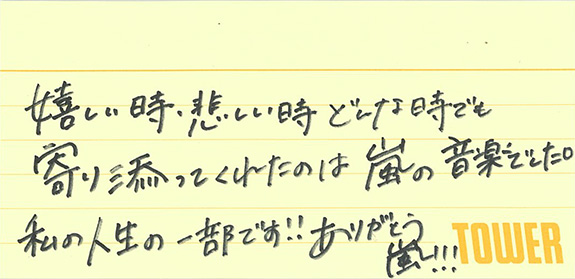 嬉しい時・悲しい時どんな時でも
寄り添ってくれたのは嵐の音楽でした。
私の人生の一部です!!ありがとう
嵐!!! TOWER